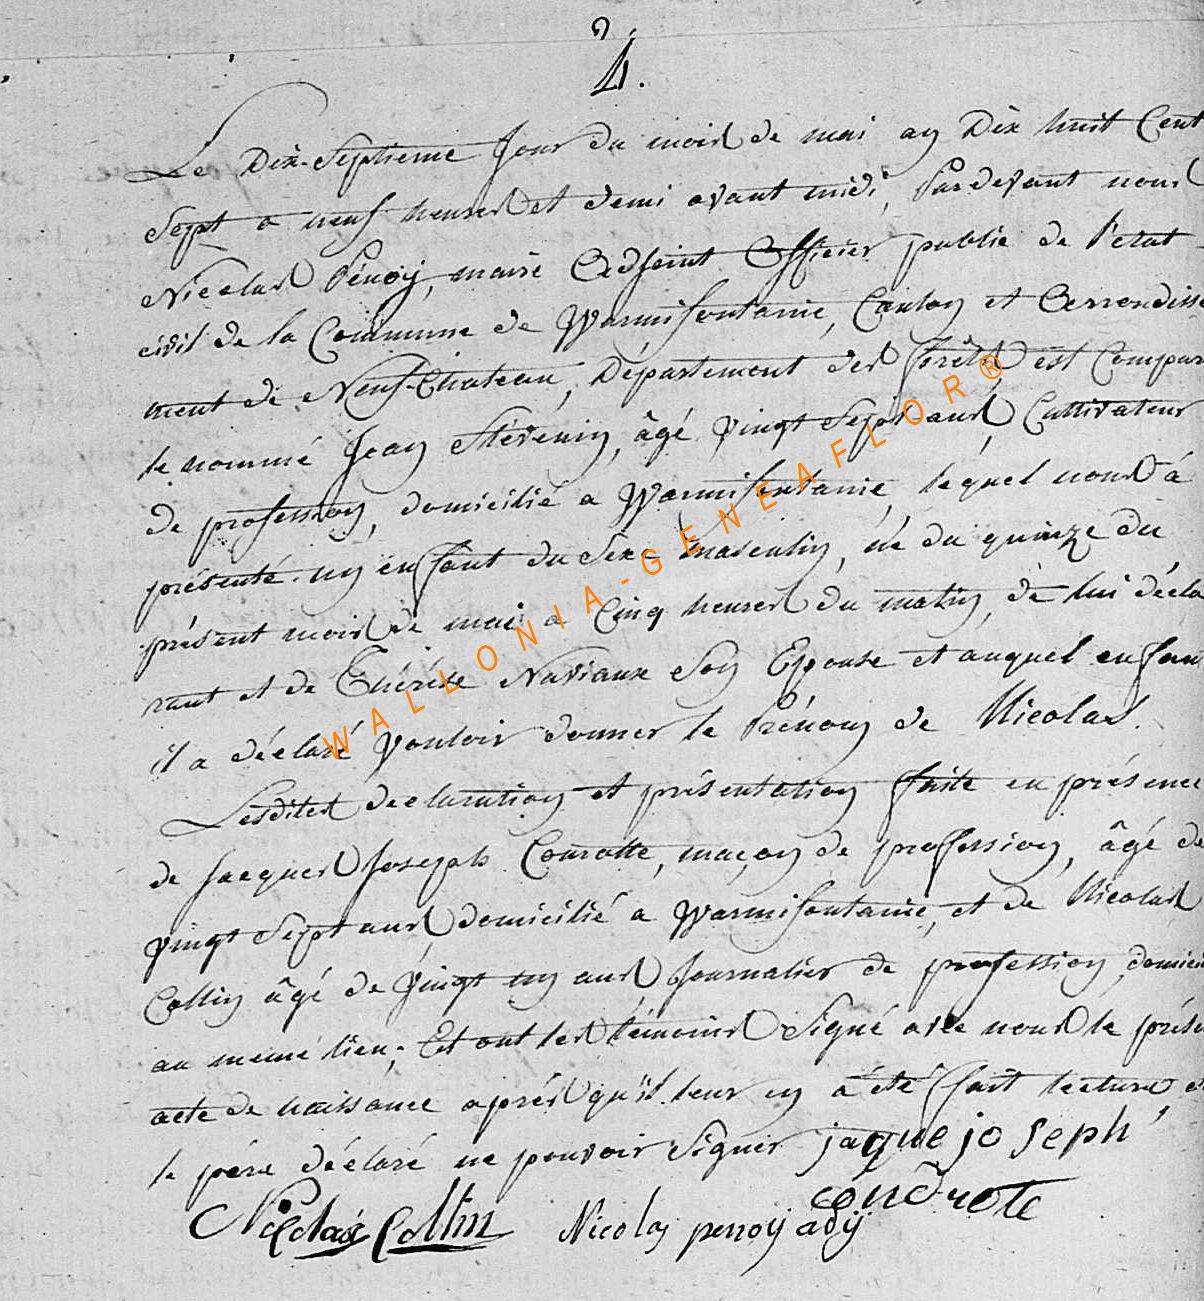 4.
Le Dix-Septieme Jour du mois de mai an Dix huit Cent
Sept a neuf heures et demi avant midi, Pardevant nous
Nicolas Pénoÿ, maire Adjoint Officier public de l'etat
civil de la Commune de Warmifontaine, Canton et Arrondisse
ment de Neuf-Chateau, Département des forêts est Compar
le nommé Jean Stévenin, âgé vingt Sept ans, Cultivateur
de profession, domicilié a Warmifontaine, lequel nous à
présenté un enfant du Sexe masculin, né du quinze du
présent mois de mai a Cinq heures du matin, de lui décla
rant et de Thérése Naviaux Son Epouse et auquel enfan
il a déclaré vouloir donner le Prénom de Nicolas.
Lesdites declaration et présentation faite en présence
de Jacques Joseph Courotte, maçon de profession, âgé de
vingt Sept ans, domicilié a Warmifontaine, et de Nicolas
Collin âgé de Vingt un ans Journalier de profession, domici
au meme lieu; Et ont les témoins Signé avec nous le prése
acte de naissance aprés qu'il leur en à été fait lecture et
le pére déclaré ne pouvoir Signer jaque joseph
Nicolas Collin Nicolas penoÿ adj
WALLONIA-GENEAFLOR®